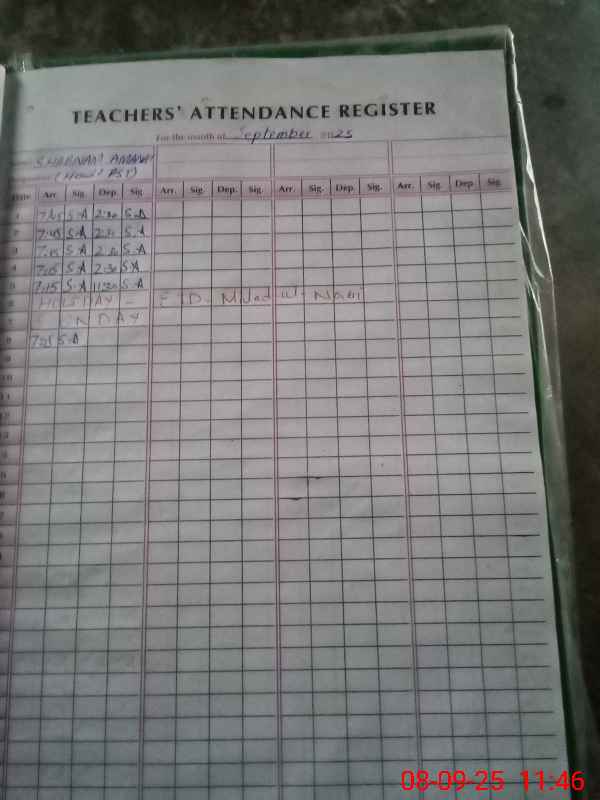 TEACHERS' ATTENDANCE REGISTER
For the month of September 2025
SHABNAM AMANAT
(Now PST)
Date Arr. Sig. Dep. Sig. Arr. Sig. Dep. Sig. Arr. Sig. Dep. Sig. Arr. Sig. Dep. Sig.
1 7:45 S.A 2:30 S.A
2 7:45 S.A S.A
3 7:45 S.A S.A
4 7:45 S.A 2:30 S.A
5 7:45 S.A 11:30 S.A
HOLIDAY - EID-Milad ul-Nabi
SUNDAY
8 S.A
10
11
12
08-09-25 11:46